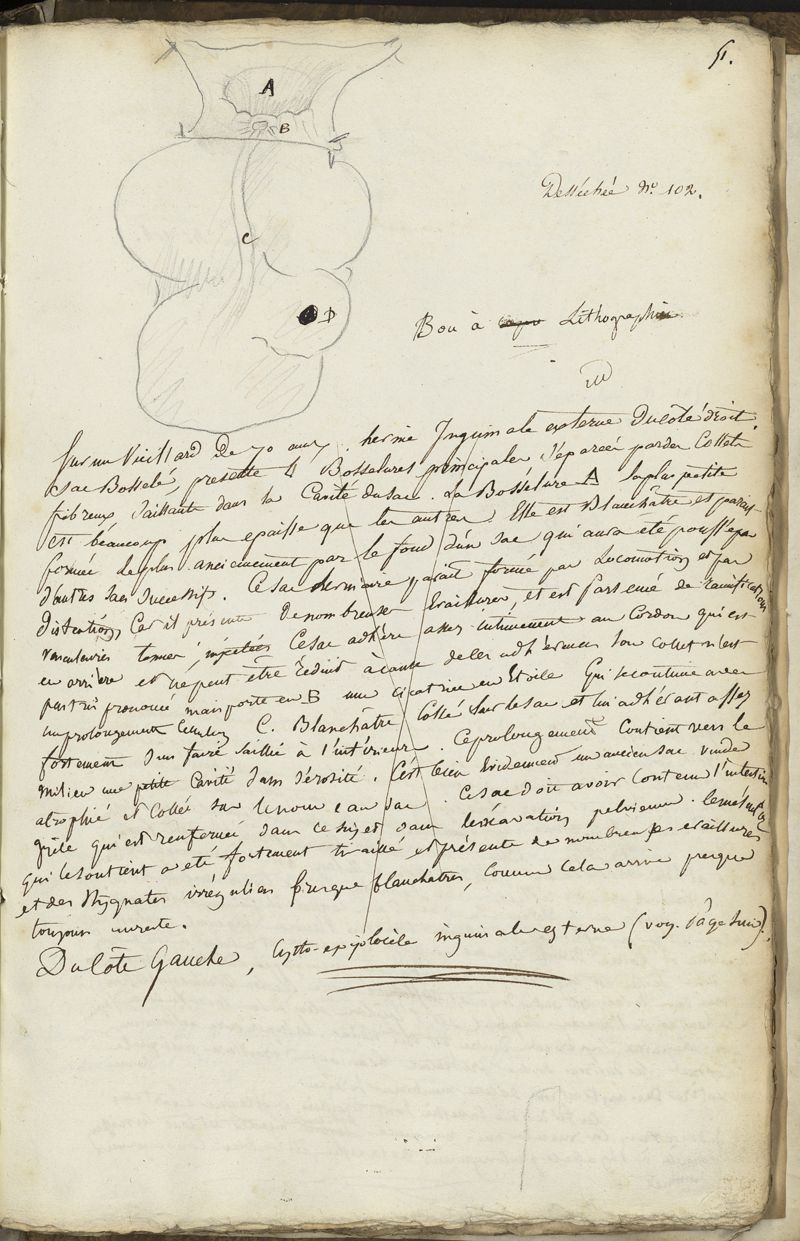 51.
A
B
C
D
Desséchée No. 102.
Bon à Lithographier
Sur un Vieillard De 70 ans, hernie Inguinale externe Du Côté droit.
Sac Bosselé, présente 4 Bosselures principales séparées par des Collets
fibreux saillants dans la Cavité du sac. La Bosselure A la plus petite
est beaucoup plus epaisse que les autres, Elle est Blanchâtre et parait
formée le plus anciennement par le fond d'un sac qui aura été poussé par
d'autres sacs successifs. Ce sac dernier paraît formé par Locomotion et par
distention, Car il présente De nombreuses Eraillures, et est parsemé de ramifications
vasculaires Ce sac adhère assez intimement au Cordon qui est
en arrière et ne peut être réduit à cause de ses adhérences son collet n'est
pas très prononcé mais porte en B une cicatrice en Etoile qui se continue avec
un prolongement C. Blanchâtre Collé sur le sac et lui adhérant assez
fortement sans faire saillie à l'intérieur. Ce prolongement Contient vers le
milieu une petite Cavité sans sérosité. C'est bien Evidemment un ancien sac vuide
atrophié et Collé sur le nouveau sac. Ce sac doit avoir Contenu l'intestin
grêle qui est renfermé dans ce sujet dans l'excavation pelvienne. le mésentère
qui le soutient a été fortement tiraillé et présente de nombreuses eraillures
et des Stygmates irréguliers presque blanchatres, comme cela arrive presque
toujours
Du Côté Gauche, inguinale externe (voy. Page suiv.)